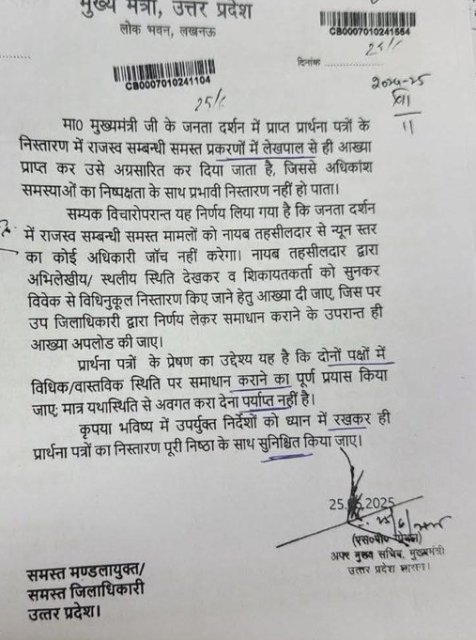 मुख्य मंत्री, उत्तर प्रदेश
लोक भवन, लखनऊ
CB0007010241554
25/6
दिनांक
CB0007010241104
25/6
2024-25
11
मा0 मुख्यमंत्री जी के जनता दर्शन में प्राप्त प्रार्थना पत्रों के
निस्तारण में राजस्व सम्बन्धी समस्त प्रकरणों में लेखपाल से ही आख्या
प्राप्त कर उसे अग्रसारित कर दिया जाता है, जिससे अधिकांश
समस्याओं का निष्पक्षता के साथ प्रभावी निस्तारण नहीं हो पाता।
सम्यक विचारोपरान्त यह निर्णय लिया गया है कि जनता दर्शन
में राजस्व सम्बन्धी समस्त मामलों को नायब तहसीलदार से न्यून स्तर
का कोई अधिकारी जॉच नहीं करेगा। नायब तहसीलदार द्वारा
अभिलेखीय/ स्थलीय स्थिति देखकर व शिकायतकर्ता को सुनकर
विवेक से विधिनुकूल निस्तारण किए जाने हेतु आख्या दी जाए, जिस पर
उप जिलाधिकारी द्वारा निर्णय लेकर समाधान कराने के उपरान्त ही
आख्या अपलोड की जाए।
प्रार्थना पत्रों के प्रेषण का उद्देश्य यह है कि दोनों पक्षों में
विधिक/वास्तविक स्थिति पर समाधान कराने का पूर्ण प्रयास किया
जाए; मात्र यथास्थिति से अवगत करा देना पर्याप्त नहीं है।
कृपया भविष्य में उपर्युक्त निर्देशों को ध्यान में रखकर ही
प्रार्थना पत्रों का निस्तारण पूरी निष्ठा के साथ सुनिश्चित किया जाए।
2025
(एस०पी० गोयल)
अपर मुख्य सचिव, मुख्यमंत्री
उत्तर प्रदेश शासन।
समस्त मण्डलायुक्त/
समस्त जिलाधिकारी
उत्तर प्रदेश।